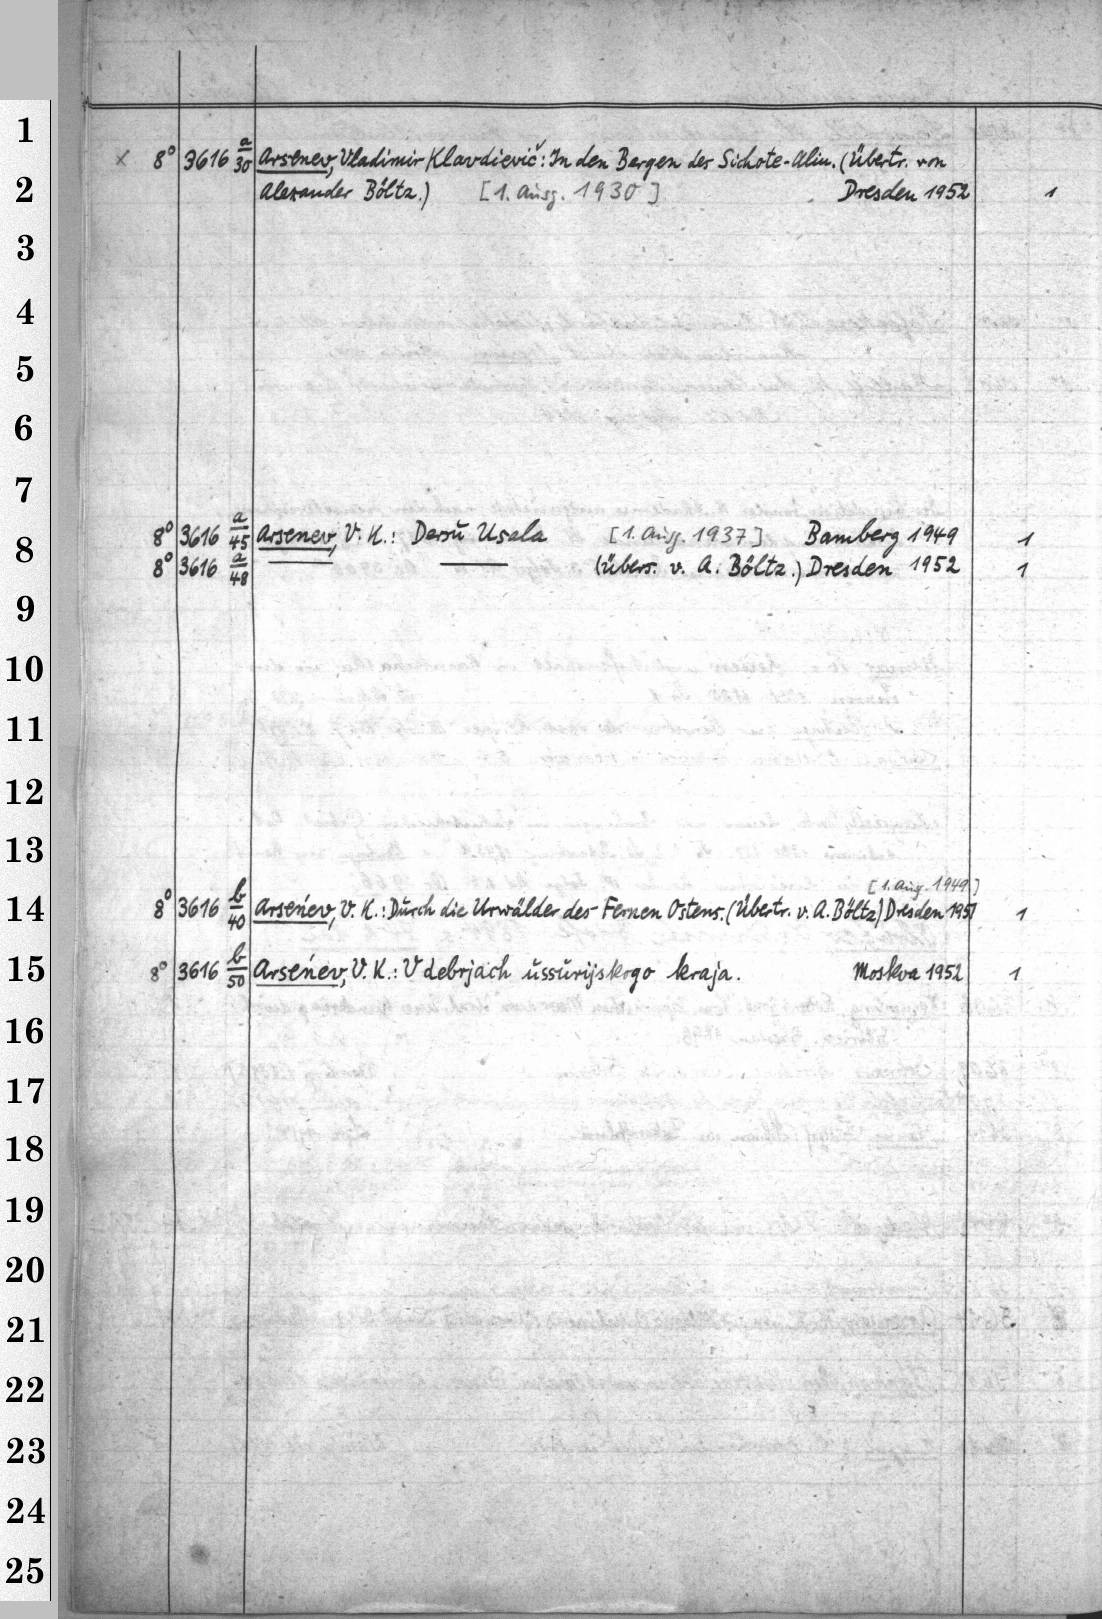 1
x 8° 3616 a/30 Arsenev, Vladimir Klavdievič: In den Bergen des Sichote-Alin. (Übertr. von
2
Alexander Böltz.) [1. Ausg. 1930] Dresden 1952 1
3
4
5
6
7
8° 3616 a/45 Arsenev, V. K.: Dersu Usala [1. Ausg. 1937] Bamberg 1949 1
8
8° 3616 a/48 — — (übers. v. A. Böltz.) Dresden 1952 1
9
10
11
12
13
[1. Ausg. 1949]
14
8° 3616 b/40 Arseńev, V. K.: Durch die Urwälder des Fernen Ostens. (Übertr. v. A. Böltz) Dresden 1951 1
15
8° 3616 b/50 Arseńev, V. K.: V debrjach ussurijskogo kraja. Moskva 1952 1
16
17
18
19
20
21
22
23
24
25